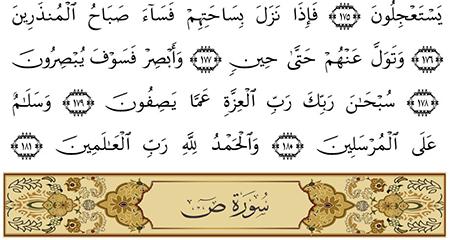 يَسْتَعْجِلُونَ ١٧٥ فَإِذَا نَزَلَ بِسَاحَتِهِمْ فَسَآءَ صَبَاحُ الْمُنذَرِينَ
١٧٦ وَتَوَلَّ عَنْهُمْ حَتَّىٰ حِينٍ ١٧٧ وَأَبْصِرْ فَسَوْفَ يُبْصِرُونَ
١٧٨ سُبْحَٰنَ رَبِّكَ رَبِّ الْعِزَّةِ عَمَّا يَصِفُونَ ١٧٩ وَسَلَٰمٌ
عَلَى الْمُرْسَلِينَ ١٨٠ وَالْحَمْدُ لِلَّهِ رَبِّ الْعَٰلَمِينَ ١٨١
سُورَةُ صٓ